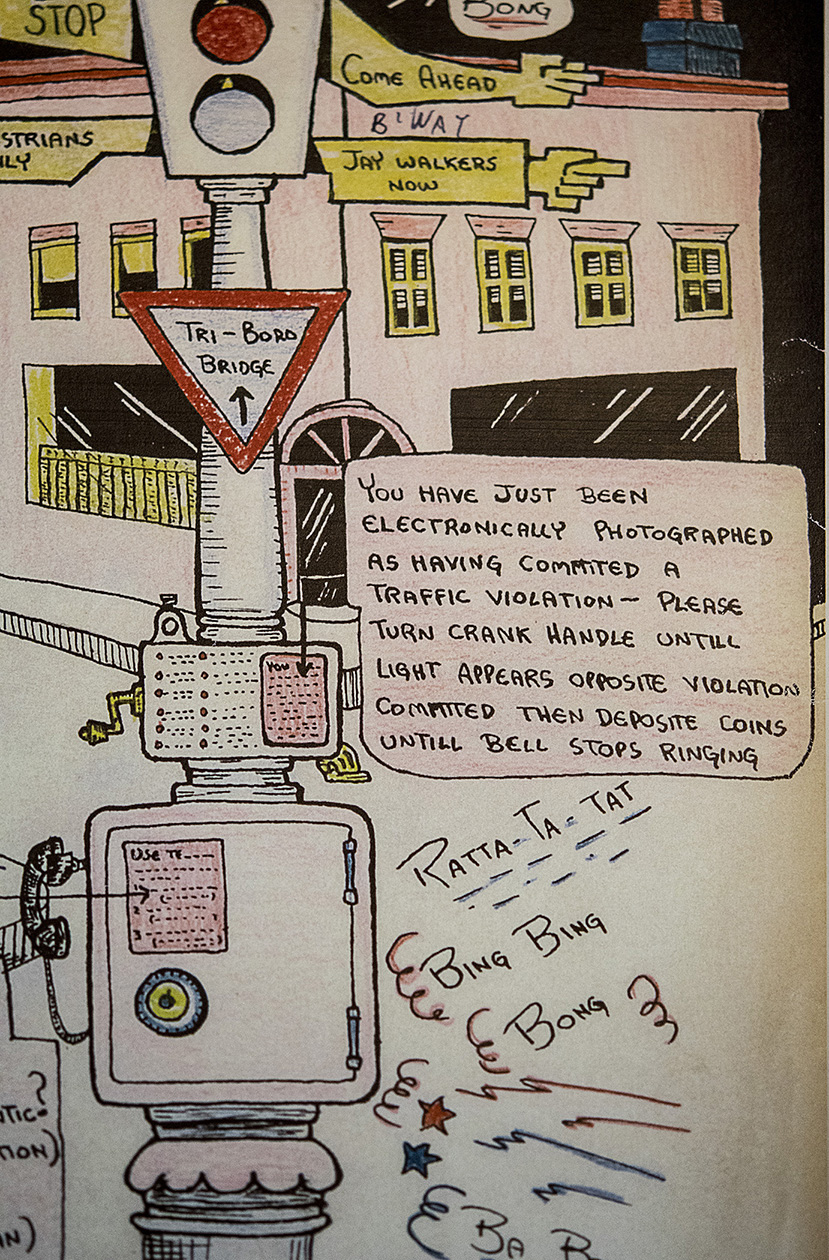 STOP
BONG
COME AHEAD
B'WAY
STRIANS
LY
JAY WALKERS
NOW
TRI-BORO
BRIDGE
YOU HAVE JUST BEEN
ELECTRONICALLY PHOTOGRAPHED
AS HAVING COMMITED A
TRAFFIC VIOLATION - PLEASE
TURN CRANK HANDLE UNTILL
LIGHT APPEARS OPPOSITE VIOLATION
COMMITED THEN DEPOSITE COINS
UNTILL BELL STOPS RINGING
YOU
USE TE
1
2
3
RATTA-TA-TAT
BING BING
BONG
?
TIC?
TION)
IN)
BA